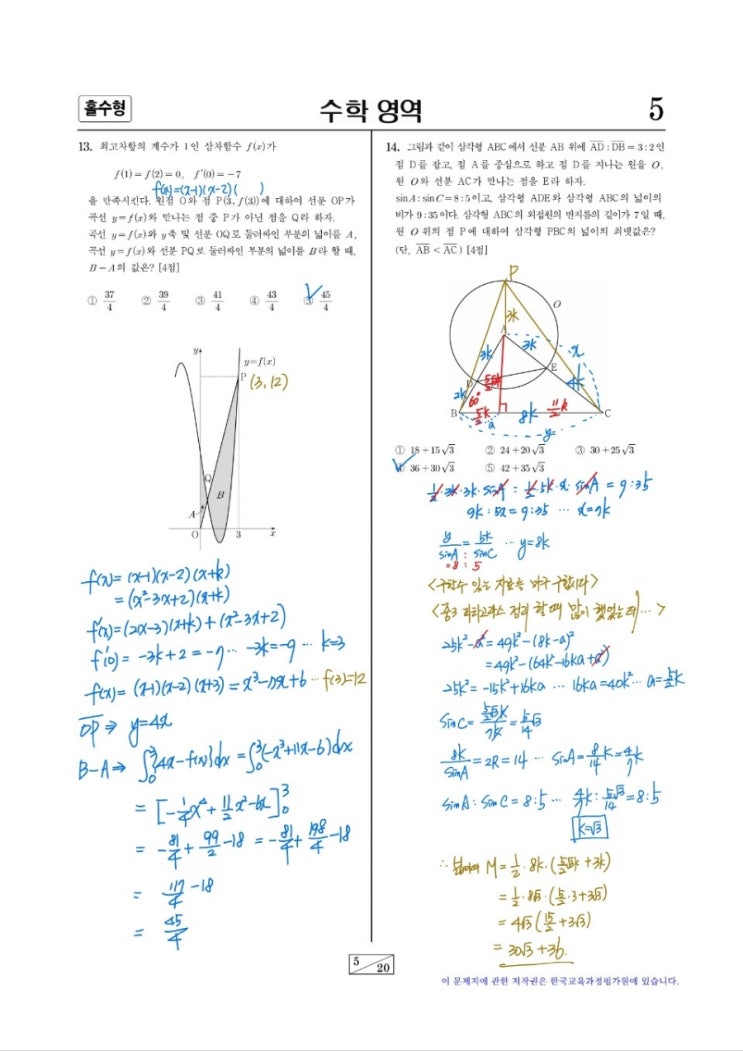 홀수형
수학 영역
5
13. 최고차항의 계수가 1인 삼차함수 f(x)가
f(1)=f(2)=0, f'(0)=-7
f(x)=(x-1)(x-2)( )
을 만족시킨다. 원점 O와 점 P(3, f(3))에 대하여 선분 OP가
곡선 y=f(x)와 만나는 점 중 P가 아닌 점을 Q라 하자.
곡선 y=f(x)와 y축 및 선분 OQ로 둘러싸인 부분의 넓이를 A,
곡선 y=f(x)와 선분 PQ로 둘러싸인 부분의 넓이를 B라 할 때,
B-A의 값은? [4점]
① 37/4 ② 39/4 ③ 41/4 ④ 43/4 ⑤ 45/4
y
y=f(x)
P (3,12)
Q
B
A
O 3 x
f(x)=(x-1)(x-2)(x+k)
=(x²-3x+2)(x+k)
f'(x)=(2x-3)(x+k)+(x²-3x+2)
f'(0)=-3k+2=-7 ··· -3k=-9 ··· k=3
f(x)=(x-1)(x-2)(x+3)=x³-7x+6 ··· f(3)=12
OP ⇒ y=4x
B-A ⇒ ∫₀³{4x-f(x)}dx=∫₀³(-x³+11x-6)dx
=[-1/4x⁴+11/2x²-6x]₀³
=-81/4+99/2-18=-81/4+198/4-18
=117/4-18
=45/4
14. 그림과 같이 삼각형 ABC에서 선분 AB 위에 AD:DB=3:2인
점 D를 잡고, 점 A를 중심으로 하고 점 D를 지나는 원을 O,
원 O와 선분 AC가 만나는 점을 E라 하자.
sinA:sinC=8:5이고, 삼각형 ADE와 삼각형 ABC의 넓이의
비가 9:35이다. 삼각형 ABC의 외접원의 반지름의 길이가 7일 때,
원 O 위의 점 P에 대하여 삼각형 PBC의 넓이의 최댓값은?
(단, AB<AC) [4점]
P
O
3k
A
3k 3k x
E
D
4k
2k 60°
B 5/2k a 8k 11/2k C
y
① 18+15√3 ② 24+20√3 ③ 30+25√3
④ 36+30√3 ⑤ 42+35√3
1/2·3k·3k·sinA : 1/2·5k·x·sinA = 9:35
9k:5x=9:35 ··· x=7k
y/sinA = 5k/sinC ··· y=8k
=8 : 5
<구할수 있는 자료를 마구 구합시다>
25k²-a²=49k²-(8k-a)²
=49k²-(64k²-16ka+a²)
25k²=-15k²+16ka ··· 16ka=40k² ··· a=5/2k
sinC=(5√3/2k)/7k=5√3/14
8k/sinA=2R=14 ··· sinA=8/14k=4/7k
sinA:sinC=8:5 ··· 4/7k:5√3/14=8:5
k=√3
∴ M=1/2·8k·(5√3/2k+3k)
=1/2·8√3·(5/2·3+3√3)
=4√3(15/2+3√3)
=30√3+36.
5
20
이 문제지에 관한 저작권은 한국교육과정평가원에 있습니다.